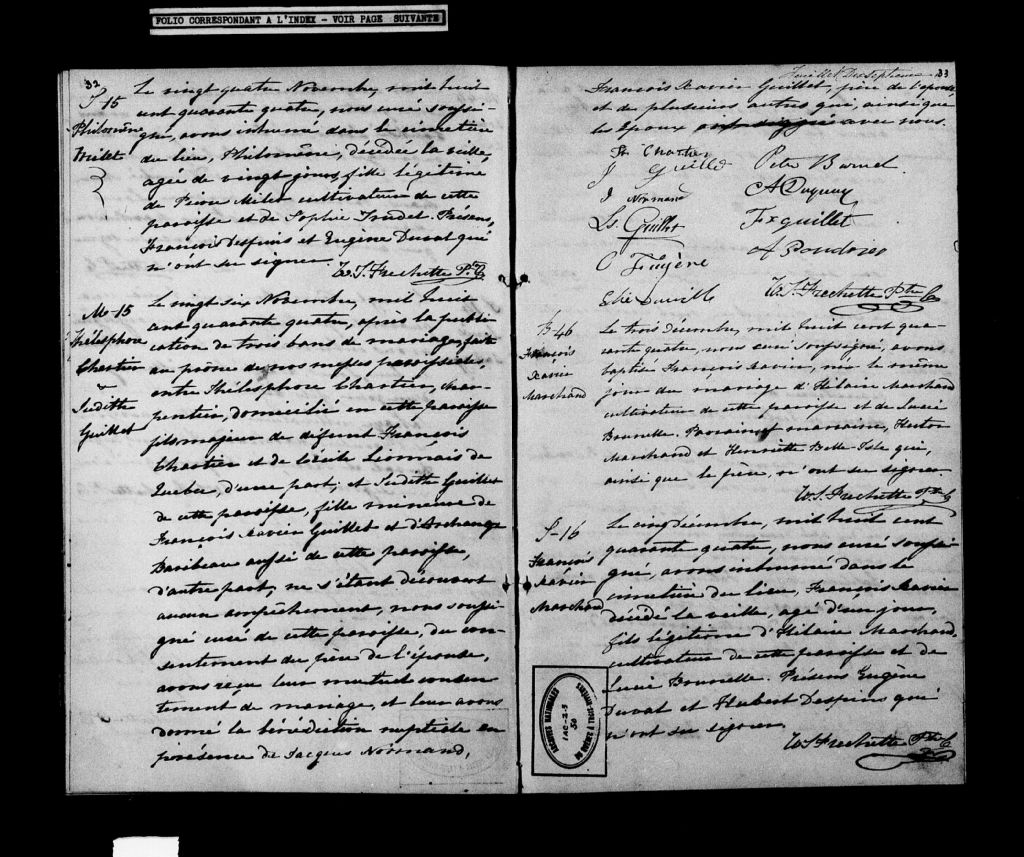 FOLIO CORRESPONDANT A L'INDEX - VOIR PAGE SUIVANTE
32
S-15
Philomène
Milet
Le vingt quatre Novembre, mil huit
cent quarante quatre, nous curé soussi-
gné, avons inhumé dans le cimetière
du lieu, Philomène, décédée la veille,
agée de vingt jours, fille légitime
de Pierre Milet cultivateur de cette
paroisse et de Sophie Trudel. Présens,
François Despins et Eugène Duval qui
n'ont su signer.
W. S. Frechette Ptre C
M-15
Thélesphore
Chartier
&
Judithe
Guillet
Le vingt six Novembre, mil huit
cent quarante quatre, après la publi
cation de trois bans de mariage, faite
au prône de nos messes paroissiales,
entre Thélesphore Chartier, char-
pentier, domicilié en cette paroisse
fils majeur de défunt François
Chartier et de Cécile Lionnais de
Quebec, d'une part; et Judithe Guillet
de cette paroisse, fille mineure de
François Xavier Guillet et d'Archange
Baribeau aussi de cette paroisse,
d'autre part; ne s'étant découvert
aucun empêchement, nous soussi-
gné curé de cette paroisse, du con-
sentement du père de l'épouse,
avons reçu leur mutuel consen
tement de mariage, et leur avons
donné la bénédiction nuptiale en
présence de Jacques Normand,
Feuillet Dixseptième 33
François Xavier Guillet, père de l'épouse
et de plusieurs autres qui, ainsi que
les Epoux ont signé avec nous.
Chartier
J Guillet
Peter Burnet
J Normand
Ls. Guillet
F x guillet
C Fugère
Elie Dauville
W. S. Frechette Ptre C
B 46
François
Xavier
Marchand
Le trois décembre, mil huit cent qua-
rante quatre, nous curé soussigné, avons
baptisé François Xavier, né le même
jour du mariage d'Hilaire Marchand
cultivateur de cette paroisse et de Lucie
Brunelle. Parrain et marraine, Hector
Marchand et Henriette Belle-Isle qui,
ainsi que le père, n'ont su signer.
W. S. Frechette Ptre C
S-16
François
Xavier
Marchand
Le cinq Décembre, mil huit cent
quarante quatre, nous curé soussi-
gné, avons inhumé dans le
cimetière du lieu, François Xavier
décédé la veille, agé d'un jour,
fils légitime d'Hilaire Marchand,
cultivateur de cette paroisse et de
Lucie Brunelle. Présens Eugène
Duval et Hubert Despins qui
n'ont su signer.
W. S. Frechette Ptre C
ARCHIVES NATIONALES